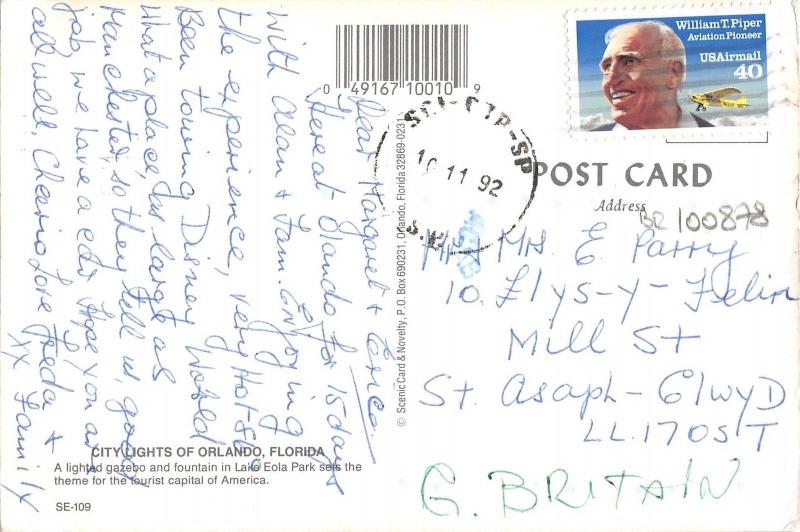 William T. Piper
Aviation Pioneer
USAirmail
40
0 49167 10010 9
10 11 92
POST CARD
Address
BR 100878
Mr + Mrs. E. Parry
10. Llys-y-Felin
Mill St
St. Asaph - Clwyd
LL.170ST
G. BRITAIN
Dear Margaret + Erica
Here at Orlando for 15 days
with Alan + Fam. Enjoying
the experience, very Hot - 80s
Been touring Disney World
What a place as large as
Manchester, so they tell us, good
job we have a car. Hope you are
all well, Cheerio Love Freda +
Family
xx x
© Scenic Card & Novelty, P.O. Box 690231, Orlando, Florida 32869-0231
CITY LIGHTS OF ORLANDO, FLORIDA
A lighted gazebo and fountain in Lake Eola Park sets the
theme for the tourist capital of America.
SE-109